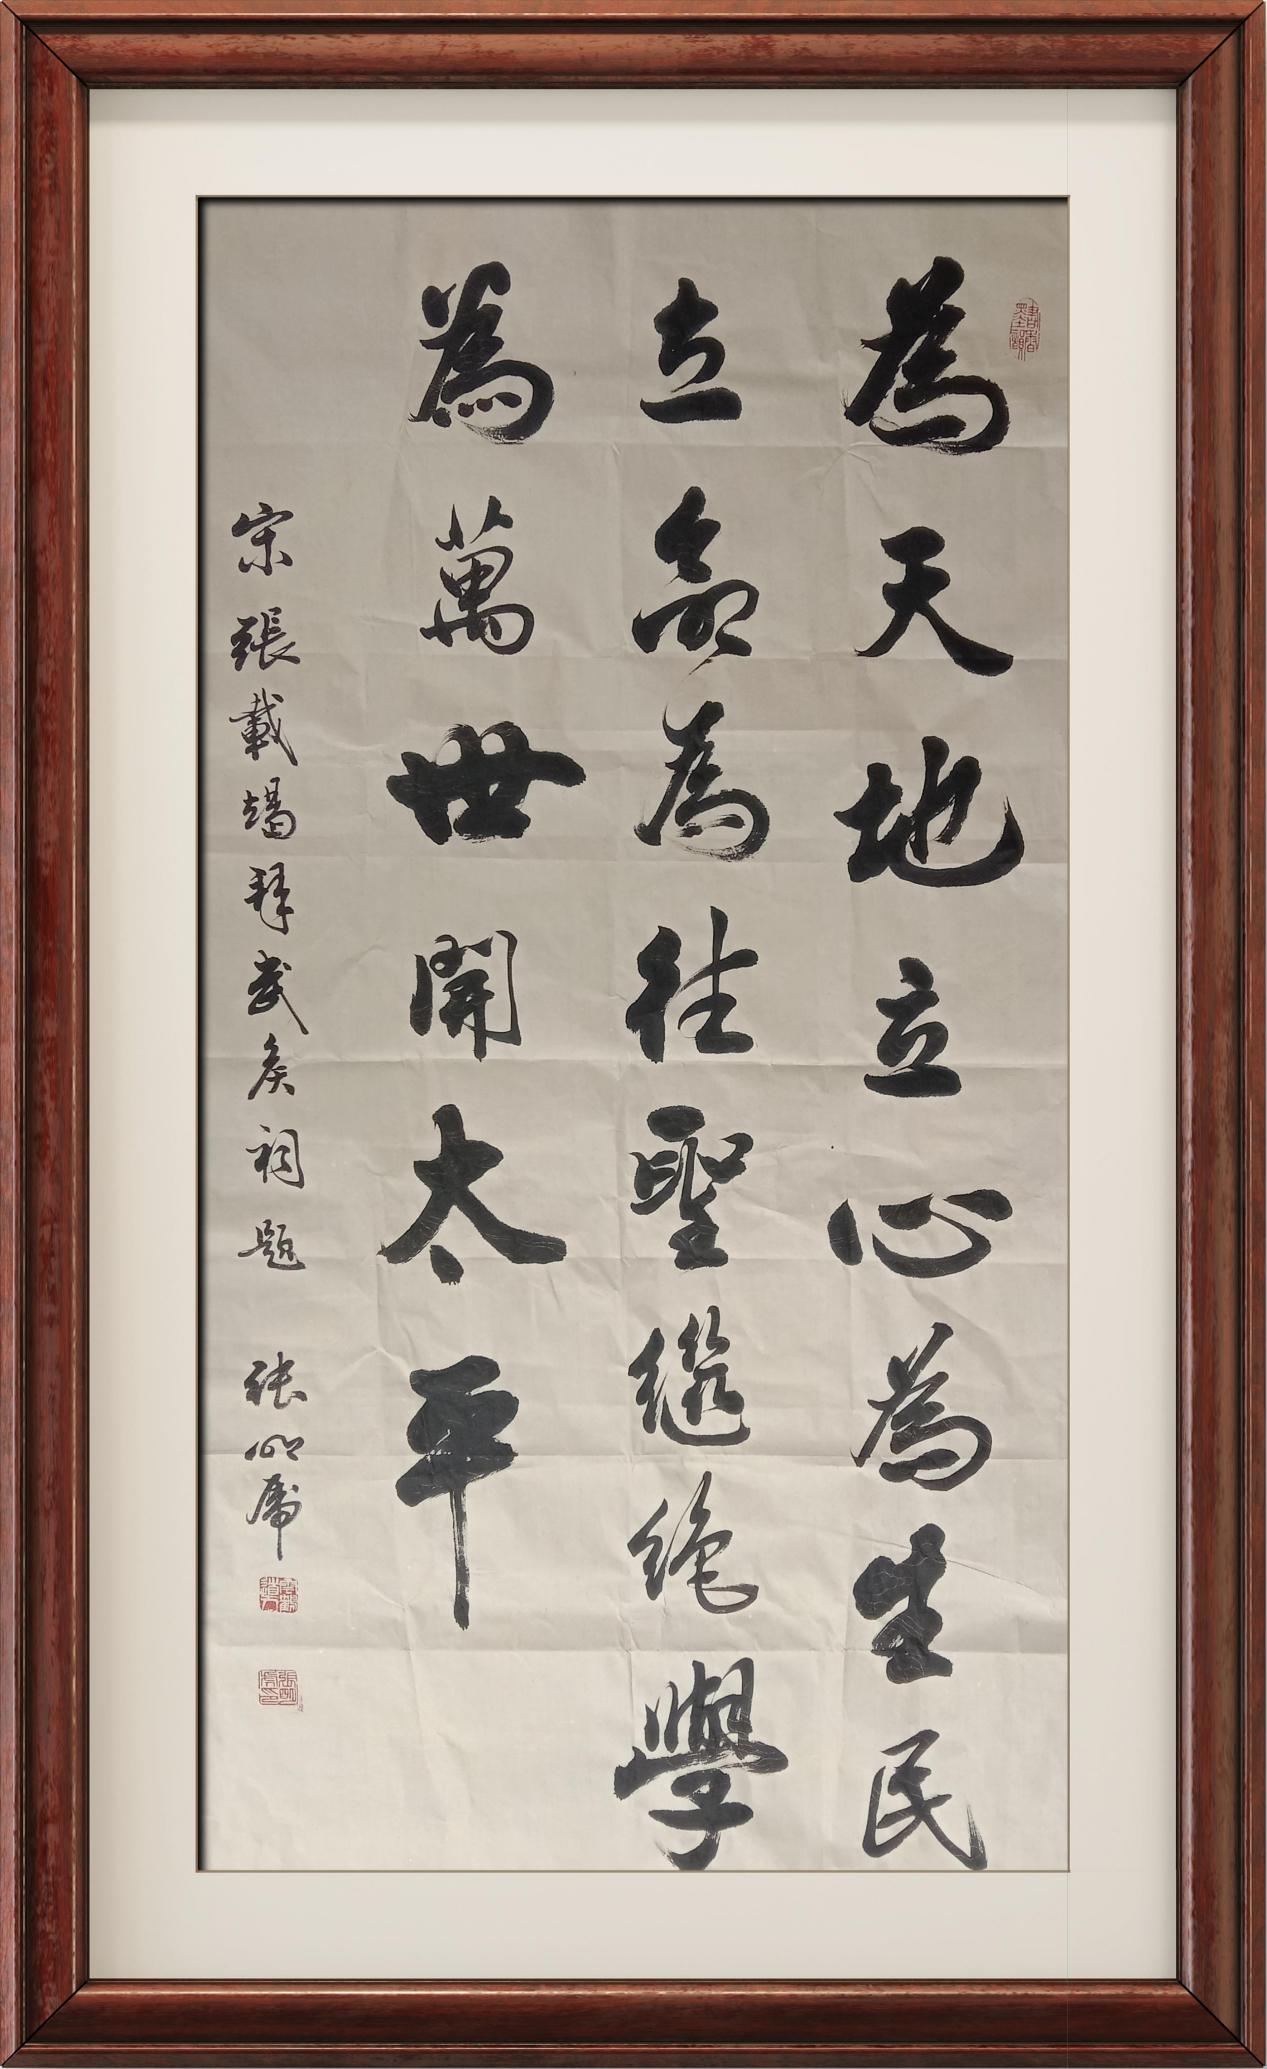 為天地立心為生民
立命為往聖繼絕學
為萬世開太平
宋張載謁拜武侯祠題 张明虎